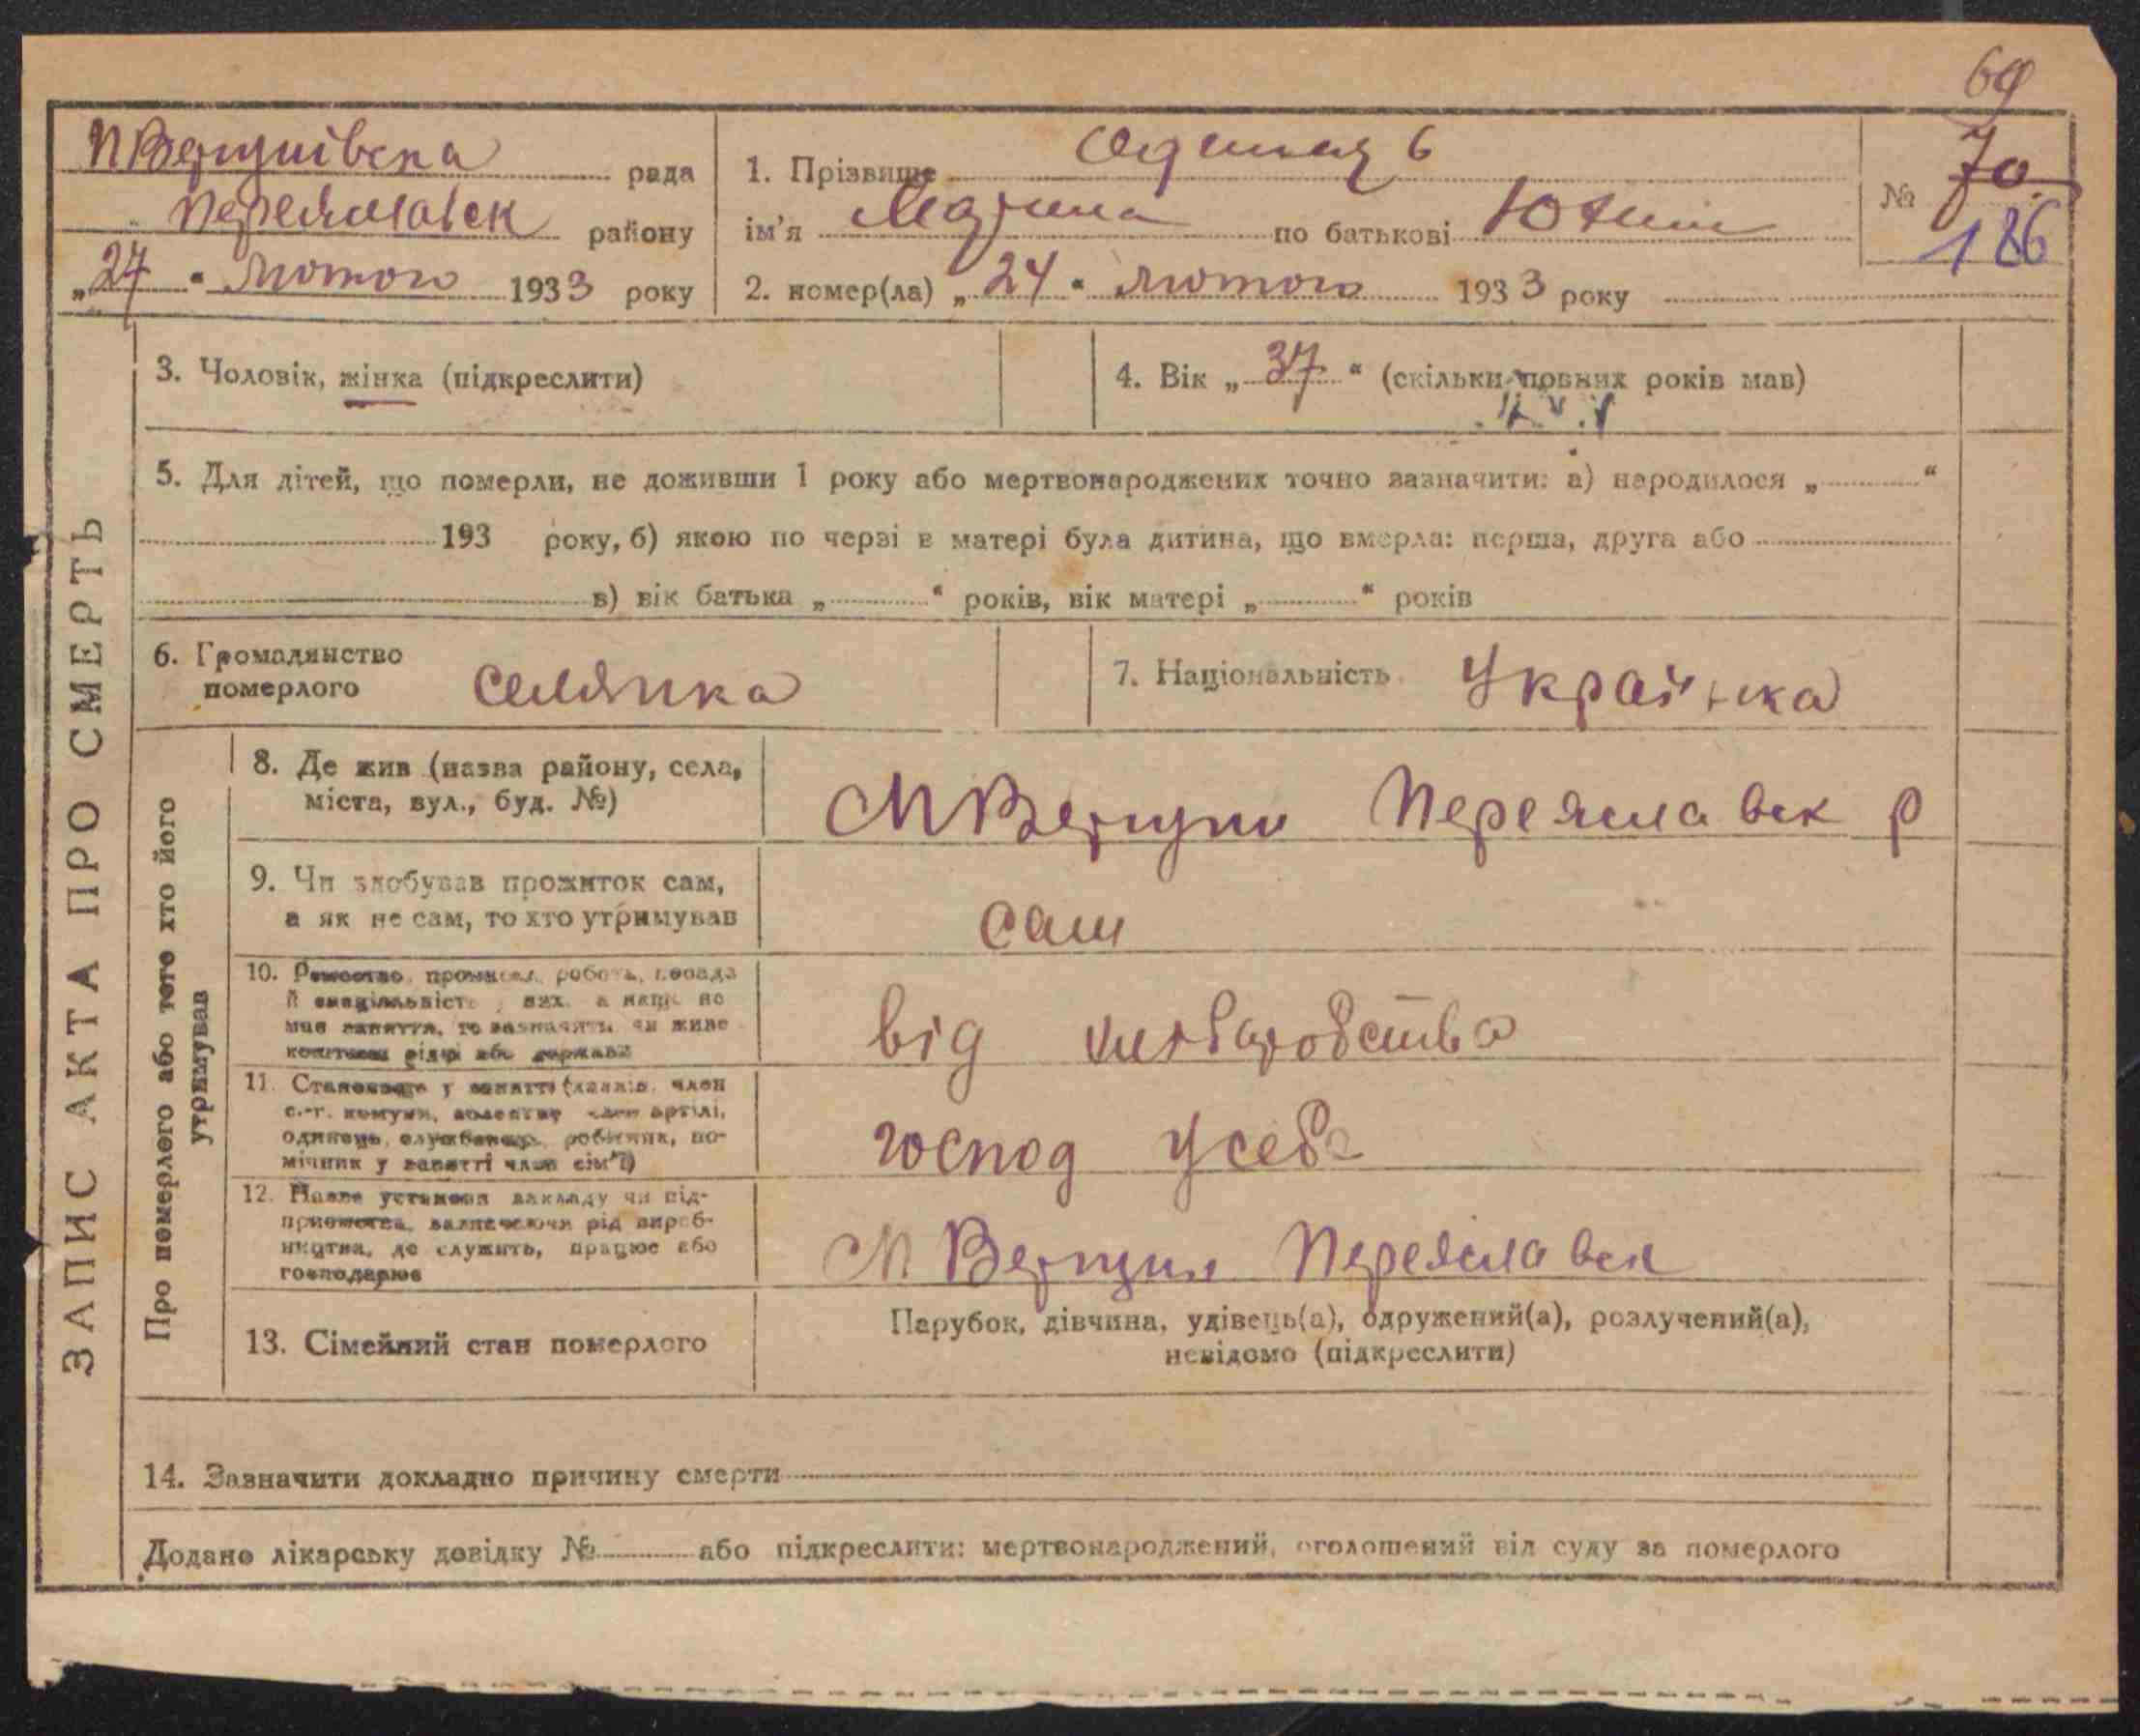 69
рада
Переяславск району
„27“ Лютого 1933 року
1. Прізвище
ім'я по батькові
№ 70
186
2. помер(ла) „24“ Лютого 1933 року
3. Чоловік, жінка (підкреслити)
4. Вік „37“ (скільки повних років мав)
5. Для дітей, що померли, не доживши 1 року або мертвонароджених точно зазначити: а) народилося „ “
193 року, б) якою по черзі в матері була дитина, що вмерла: перша, друга або
в) вік батька „ “ років, вік матері „ “ років
6. Громадянство
померлого
Селянка
7. Національність Українка
ЗАПИС АКТА ПРО СМЕРТЬ
Про померлого або того хто його
утримував
8. Де жив (назва району, села,
міста, вул., буд. №)
Переяславск р
9. Чи здобував прожиток сам,
а як не сам, то хто утримував
сам
10. Ремество, промисел, робота, посада
й спеціяльність, а якщо не
мав заняття, то зазначити чи живе
коштами рідні або держави
від хліборобства
11. Становище у занятті (хазяїн, член
с.-г. комуни, колективу член артілі,
одинець, службовець, робітник, по-
мічник у занятті член сім'ї)
господ у себе
12. Назва установи закладу чи під-
приємства, зазначаючи рід вироб-
ництва, де служить, працює або
господарює
Переяславск
13. Сімейний стан померлого
Парубок, дівчина, удівець(а), одружений(а), розлучений(а),
невідомо (підкреслити)
14. Зазначити докладно причину смерти
Додано лікарську довідку № або підкреслити: мертвонароджений, оголошений від суду за померлого